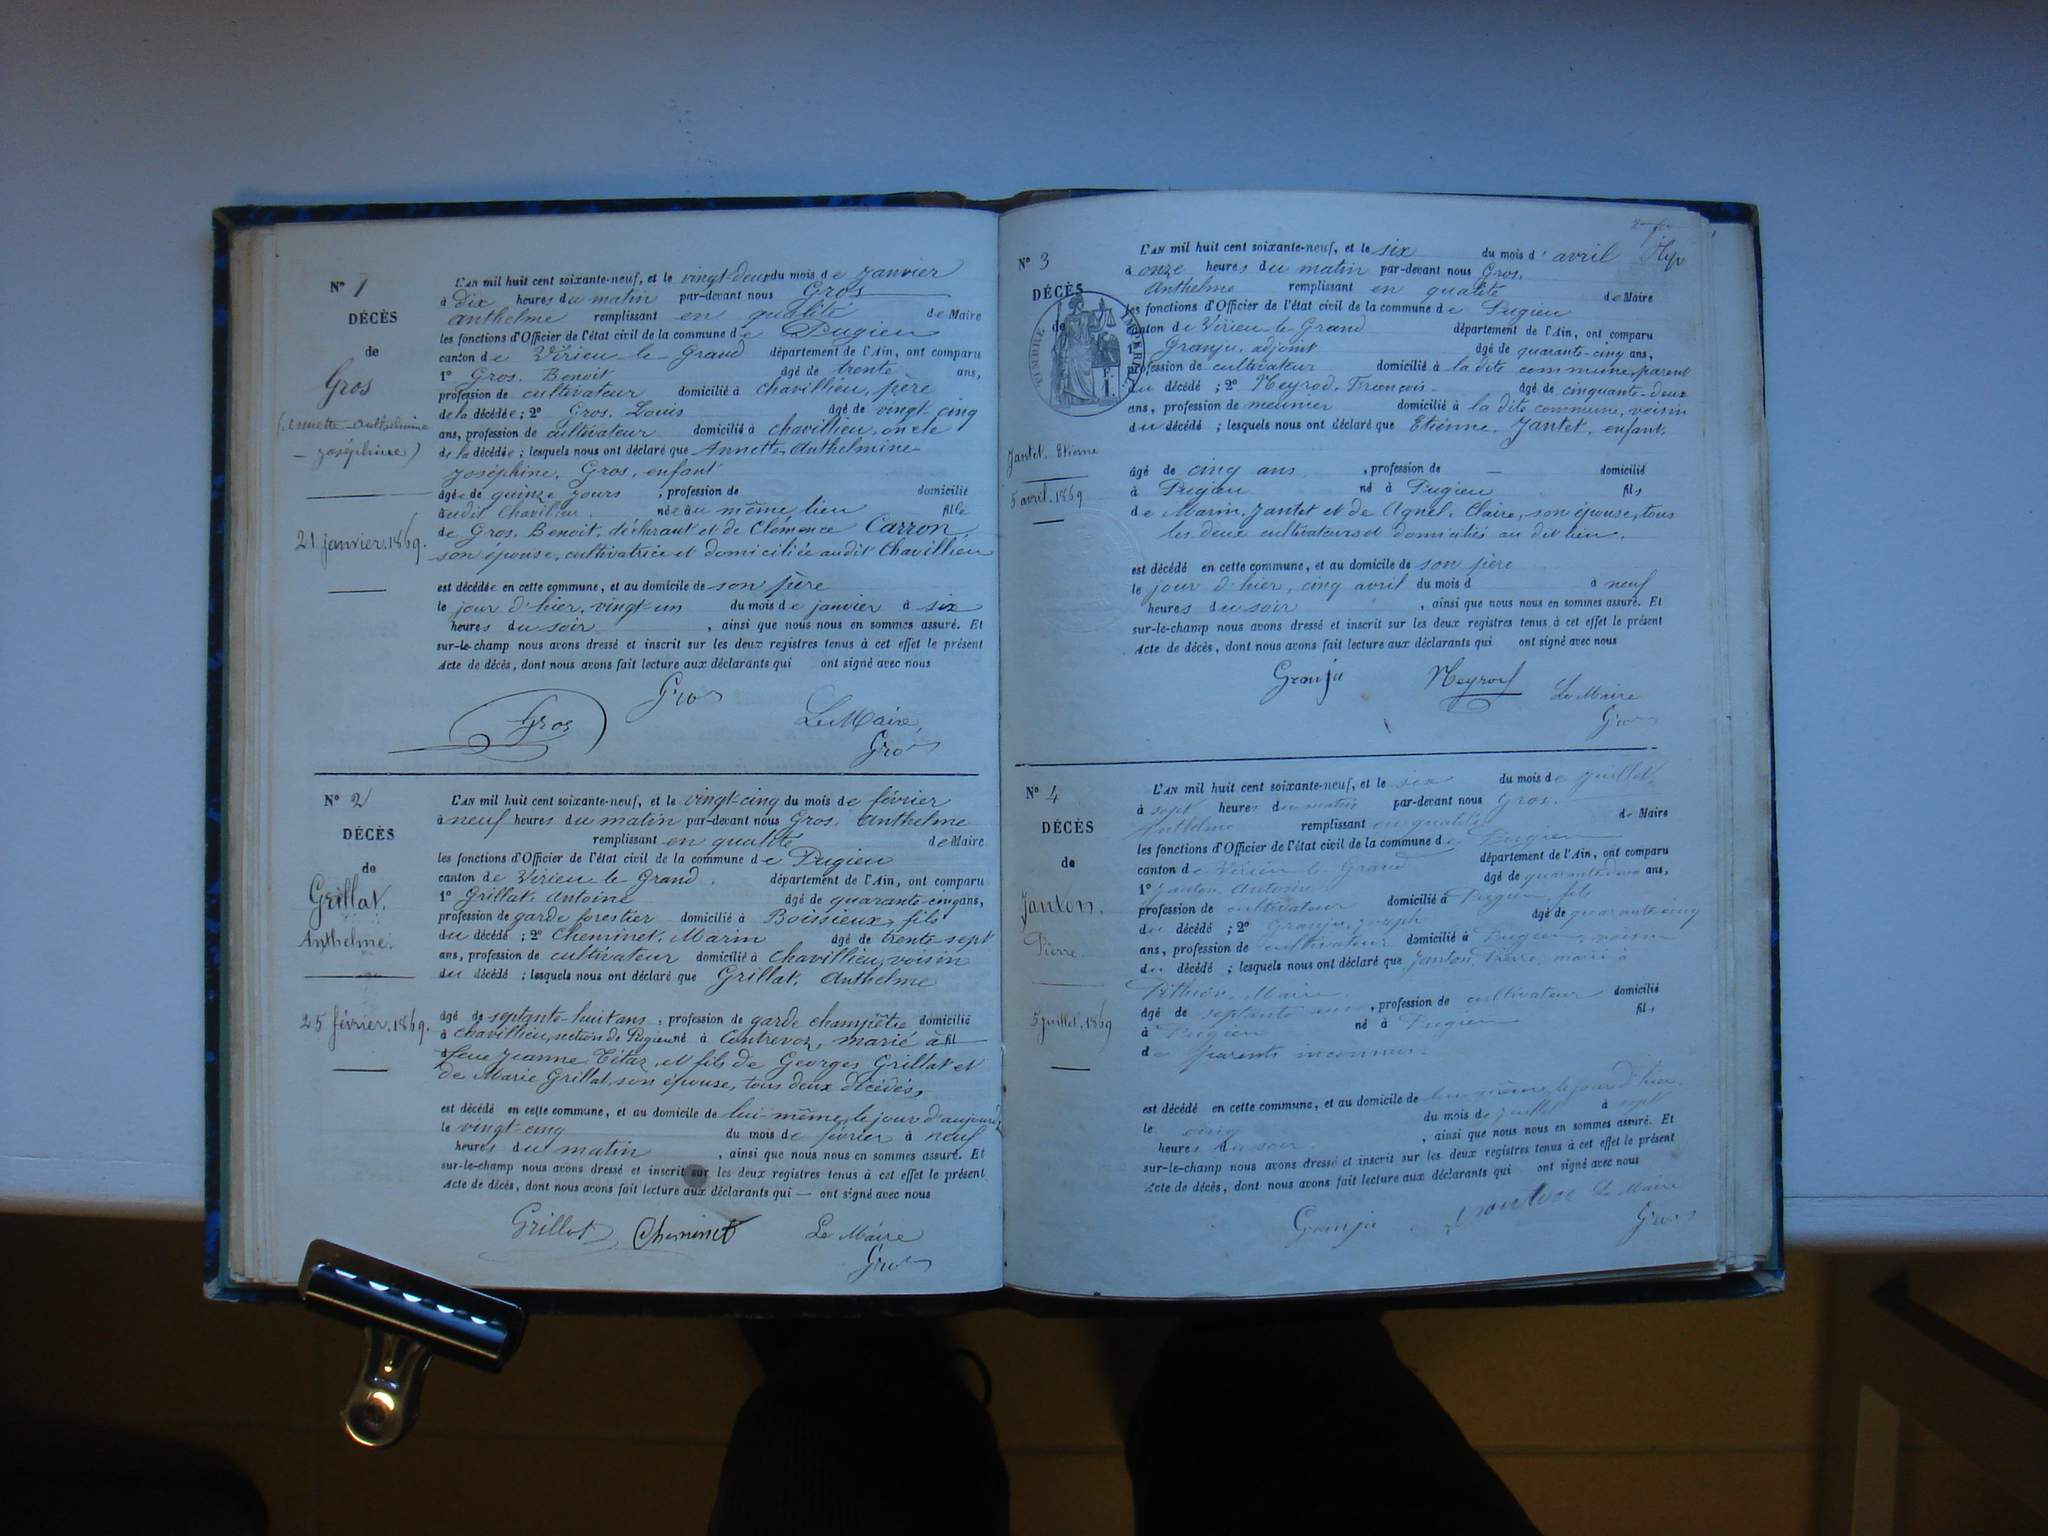 N° 1
DÉCÈS
de
Gros
(Annette-Anthelmine
- Joséphine)
21 janvier 1869.
L'AN mil huit cent soixante-neuf, et le vingt-deux du mois de janvier
à dix heures du matin par-devant nous Gros
Anthelme remplissant en qualité de Maire
les fonctions d'Officier de l'état civil de la commune de Pugieu
canton de Virieu-le-Grand département de l'Ain, ont comparu
1° Gros, Benoit âgé de trente ans,
profession de cultivateur domicilié à chavillieu, père
de la décédée ; 2° Gros, Louis âgé de vingt-cinq
ans, profession de cultivateur domicilié à chavillieu, oncle
de la décédée ; lesquels nous ont déclaré que Annette, Anthelmine
Joséphine, Gros, enfant
âgée de quinze jours , profession de domicilié
audit Chavillieu. née au même lieu fille
de Gros, Benoit, déclarant et de Clémence Carron,
son épouse, cultivatrice et domiciliée audit Chavillieu
est décédée en cette commune, et au domicile de son père
le jour d'hier, vingt-un du mois de janvier à six
heures du soir , ainsi que nous nous en sommes assuré. Et
sur-le-champ nous avons dressé et inscrit sur les deux registres tenus à cet effet le présent
Acte de décès, dont nous avons fait lecture aux déclarants qui ont signé avec nous
Gros
Gros Le Maire
Gros
N° 2
DÉCÈS
de
Grillat,
Anthelme.
25 février 1869.
L'AN mil huit cent soixante-neuf, et le vingt-cinq du mois de février
à neuf heures du matin par-devant nous Gros, Anthelme
remplissant en qualité de Maire
les fonctions d'Officier de l'état civil de la commune de Pugieu
canton de Virieu-le-Grand département de l'Ain, ont comparu
1° Grillat, Antoine âgé de quarante-cinq ans,
profession de garde forestier domicilié à Boissieux, fils
du décédé ; 2° Cheminet, Marin âgé de trente-sept
ans, profession de cultivateur domicilié à chavillieu, voisin
du décédé ; lesquels nous ont déclaré que Grillat, Anthelme
âgé de septante-huit ans , profession de garde champêtre domicilié
à chavillieu, section de Pugieu né à Contrevoz, marié à fil
feue Jeanne, et fils de Georges Grillat et
de Marie Grillat, son épouse, tous deux décédés,
est décédé en cette commune, et au domicile de lui-même, le jour d'aujourd'
le vingt-cinq du mois de février à neuf
heures du matin , ainsi que nous nous en sommes assuré. Et
sur-le-champ nous avons dressé et inscrit sur les deux registres tenus à cet effet le présent
Acte de décès, dont nous avons fait lecture aux déclarants qui — ont signé avec nous
Grillat Cheminet Le Maire
Gros
N° 3
DÉCÈS
de
TIMBRE IMPÉRIAL
Jantet, Etienne
5 avril 1869
L'AN mil huit cent soixante-neuf, et le six du mois d'avril
à onze heures du matin par-devant nous Gros,
Anthelme remplissant en qualité de Maire
les fonctions d'Officier de l'état civil de la commune de Pugieu
canton de Virieu-le-Grand département de l'Ain, ont comparu
1° Granju, adjoint âgé de quarante-cinq ans,
profession de cultivateur domicilié à la dite commune, parent
du décédé ; 2° Neyrod, François âgé de cinquante-deux
ans, profession de meunier domicilié à la dite commune, voisin
du décédé ; lesquels nous ont déclaré que Etienne, Jantet, enfant,
âgé de cinq ans , profession de — domicilié
à Pugieu né à Pugieu fils
de Marin, Jantet et de Agnel, Claire, son épouse, tous
les deux cultivateurs et domiciliés au dit lieu,
est décédé en cette commune, et au domicile de son père
le jour d'hier, cinq avril du mois d à neuf
heures du soir , ainsi que nous nous en sommes assuré. Et
sur-le-champ nous avons dressé et inscrit sur les deux registres tenus à cet effet le présent
Acte de décès, dont nous avons fait lecture aux déclarants qui ont signé avec nous
Granju Neyrod Le Maire
Gros
N° 4
DÉCÈS
de
Janton,
Pierre
5 juillet 1869
L'AN mil huit cent soixante-neuf, et le six du mois de juillet
à sept heures du matin par-devant nous Gros,
Anthelme remplissant en qualité de Maire
les fonctions d'Officier de l'état civil de la commune de Pugieu
canton de Virieu-le-Grand département de l'Ain, ont comparu
1° Janton, Antoine âgé de quarante-deux ans,
profession de cultivateur domicilié à Pugieu, fils
du décédé ; 2° Granju, Joseph âgé de quarante-cinq
ans, profession de cultivateur domicilié à Pugieu, voisin
du décédé ; lesquels nous ont déclaré que Janton Pierre, marié à
Marie
âgé de septante-un , profession de cultivateur domicilié
à Pugieu né à Pugieu fils
de parents inconnus
est décédé en cette commune, et au domicile de lui-même, le jour d'hier,
le cinq du mois de juillet à sept
heures du soir , ainsi que nous nous en sommes assuré. Et
sur-le-champ nous avons dressé et inscrit sur les deux registres tenus à cet effet le présent
Acte de décès, dont nous avons fait lecture aux déclarants qui ont signé avec nous
Granju Janton Le Maire
Gros